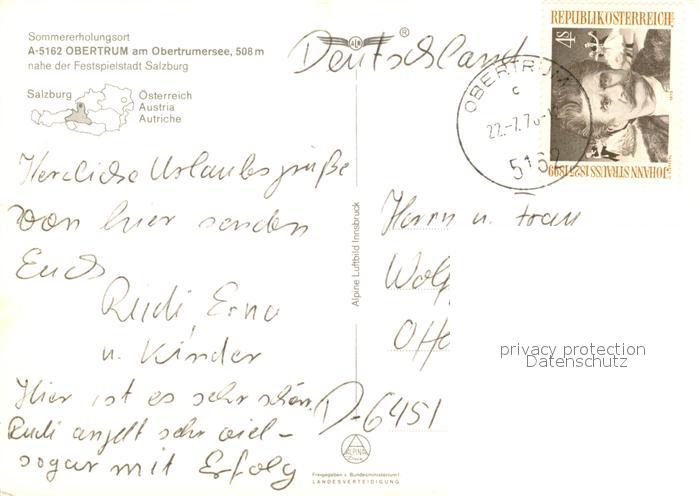 Sommererholungsort
A-5162 OBERTRUM am Obertrumersee, 508 m
nahe der Festspielstadt Salzburg
Salzburg
Österreich
Austria
Autriche
Herzliche Urlaubsgrüße
von hier senden
Euch
Rudi Erna
u. Kinder
Hier ist es sehr schön.
Rudi angelt sehr viel-
sogar mit Erfolg
Alpine Luftbild Innsbruck
Deutschland
®
REPUBLIK ÖSTERREICH
4S
JOHANN STRAUSS 1825-1899
OBERTRUM
c
22.-7.7
5162
Herrn u. Frau
Wolf
Otto
D-6451
privacy protection
Datenschutz
ALPINE
Freigegeben v. Bundesministerium f.
LANDESVERTEIDIGUNG